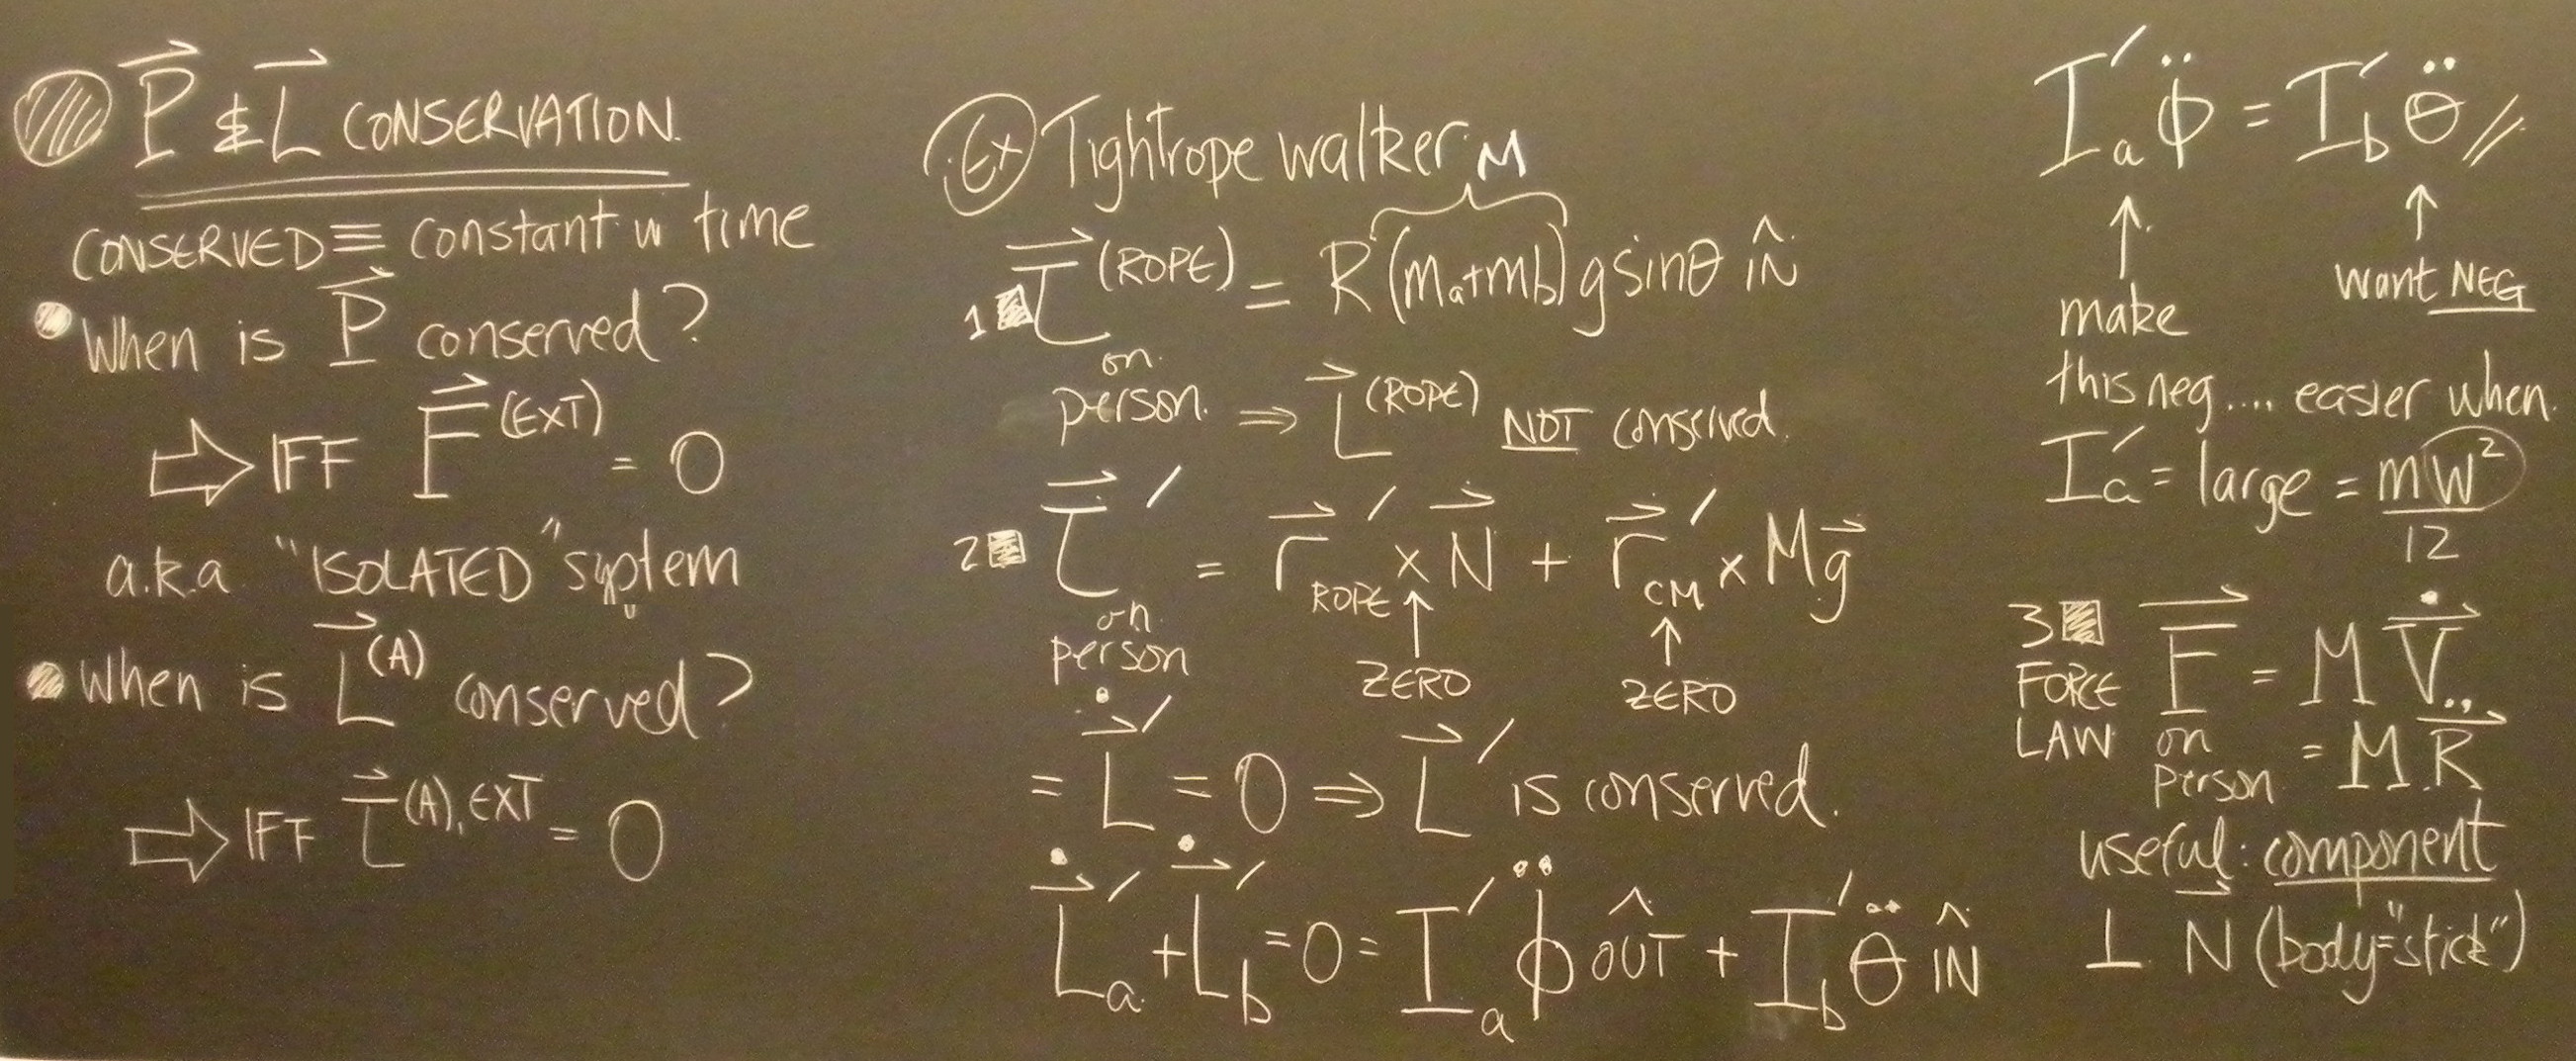 P⃗ & L⃗ CONSERVATION
CONSERVED ≡ constant w time
When is P⃗ conserved?
⇨ IFF F⃗^(EXT) = 0
a.k.a "ISOLATED" system
When is L⃗^(A) conserved?
⇨ IFF τ⃗^(A),EXT = 0
Ex Tightrope walker M
1 τ⃗^(ROPE) = R(ma+mb)g sinθ în
on
person ⇒ L⃗^(ROPE) NOT conserved.
2 τ⃗′ = r⃗′ROPE × N⃗ + r⃗′CM × Mg⃗
on
person ↑ ZERO ↑ ZERO
= L⃗̇′ = 0 ⇒ L⃗′ is conserved.
L⃗̇′a + L⃗̇′b = 0 = I′a ϕ̈ OUT̂ + I′b θ̈ IN̂
I′a ϕ̈ = I′b θ̈ //
↑ ↑
want NEG
make
this neg.... easier when
I′a = large = mW²/12
3 F⃗ = M V⃗̇
FORCE LAW on person = M R⃗̈
useful: component
⊥ N⃗ (body="stick")